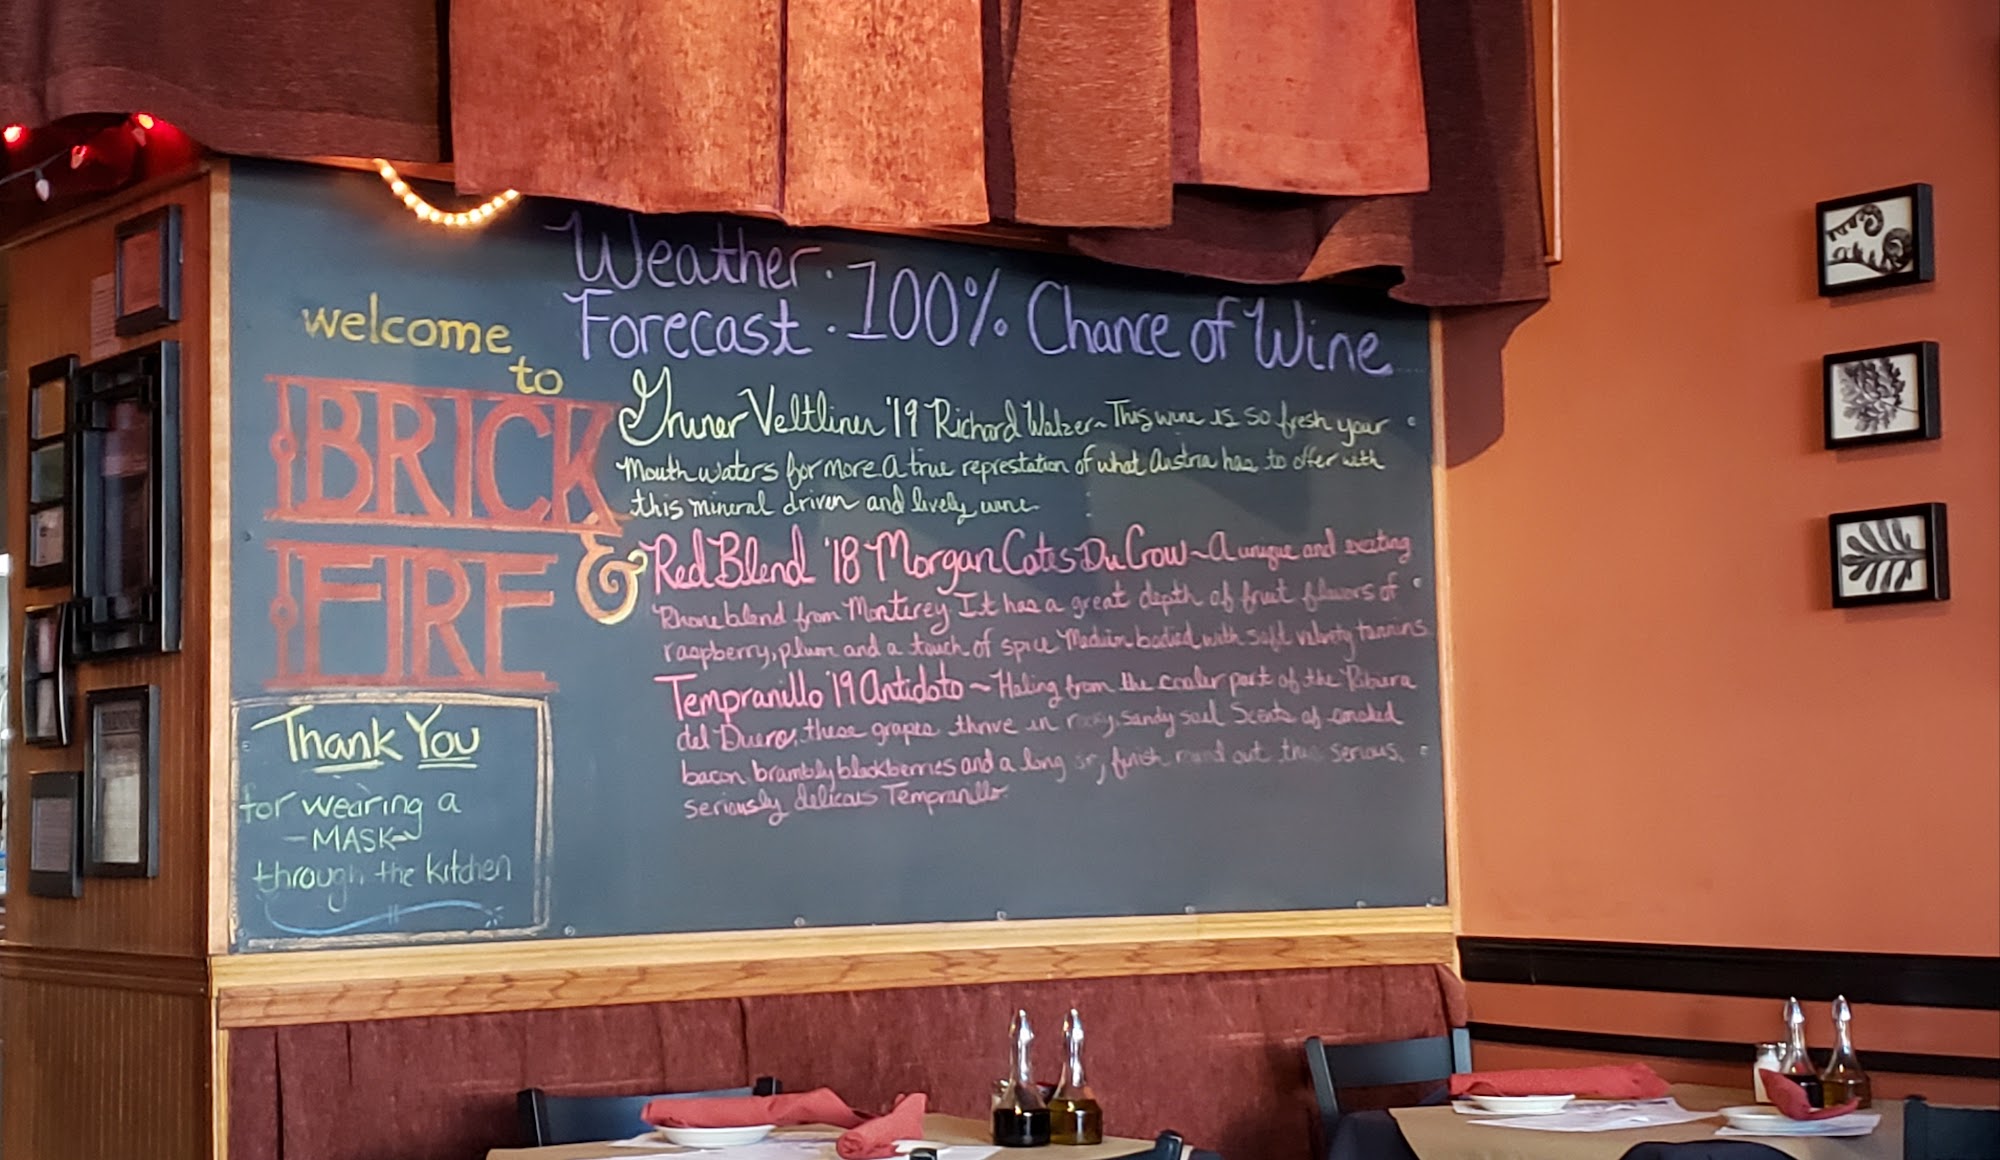 welcome
to
BRICK
&
FIRE
Thank You
for wearing a
-MASK-
through the kitchen
Weather : 100% Chance of Wine
Forecast
Gruner Veltliner '19 Richard Walzer~ This wine is so fresh your
Mouth waters for more. A true represtation of what Austria has to offer with
this mineral driven and lively wine.
Red Blend '18 Morgan Cotes Du Crow~ A unique and exciting
Rhone blend from Monterey It has a great depth of fruit flavors of
raspberry, plum and a touch of spice Meduim bodied with soft velvety tannins
Tempranillo '19 Antidoto ~ Haling from the cooler part of the Ribera
del Duero, these grapes thrive in rocky, sandy soil Scents of smoked
bacon, brambly blackberries and a long finish round out this serious,
seriously delicous Tempranillo.